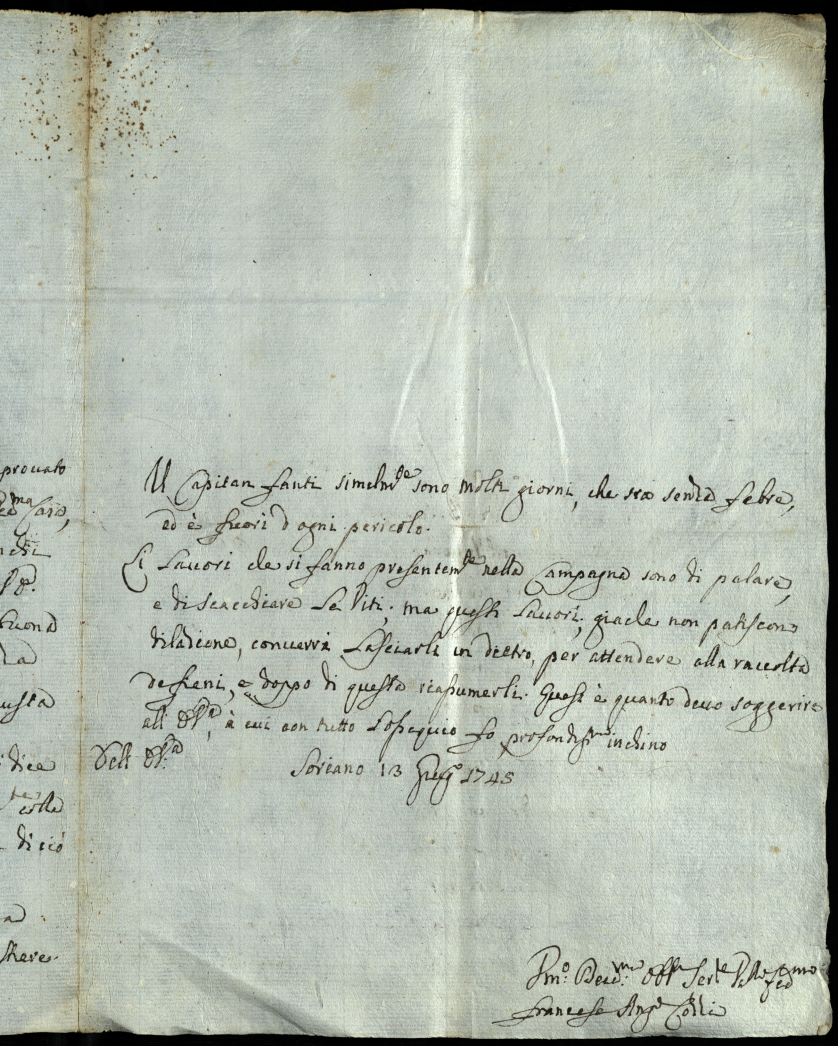 provato
ma Casa,
nchi
buona
usta
dice
colla
di ciò
Il Capitan Fanti similmte sono molti giorni, che sta senza febre,
ed è fuori d'ogni pericolo.
Li Lavori che si fanno presentemte nella Campagna sono di palare,
e di scacchiare Le Viti; ma questi Lavori, giache non patiscono
dilazione, converrà Lasciarli in dietro, per attendere alla raccolta
de fieni, e doppo di questa riassumerli. Quest'è quanto devo soggerire
all' V.S., à cui con tutto L'ossequio fo profondissmo inchino
Dell' V.S.
Soriano 13 Giugo 1745
Francesc Ango